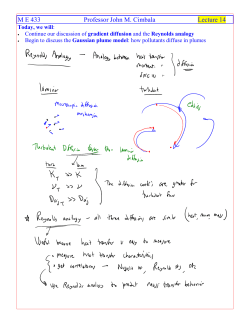 M E 433 Professor John M. Cimbala Lecture 14
Today, we will:
• Continue our discussion of gradient diffusion and the Reynolds analogy
• Begin to discuss the Gaussian plume model: how pollutants diffuse in plumes
Reynolds Analogy — Analogy between heat transfer
momentum
mass
diffusion
laminar
turbulent
diffusion
eddies
Turbulent Diffusion
laminar
diffusion
turb
lam
K_T >> K
ν_T >> ν
D_aj,T >> D_aj
The diffusion coeffs are greater for
turbulent flow
Reynolds analogy — all three diffusions are similar (heat, mom, mass)
Useful because heat transfer is easy to measure
• measure heat transfer characteristics
• get correlations — Nusselt #s, Reynolds #s, etc
• use Reynolds analogy to predict mass transfer behavior